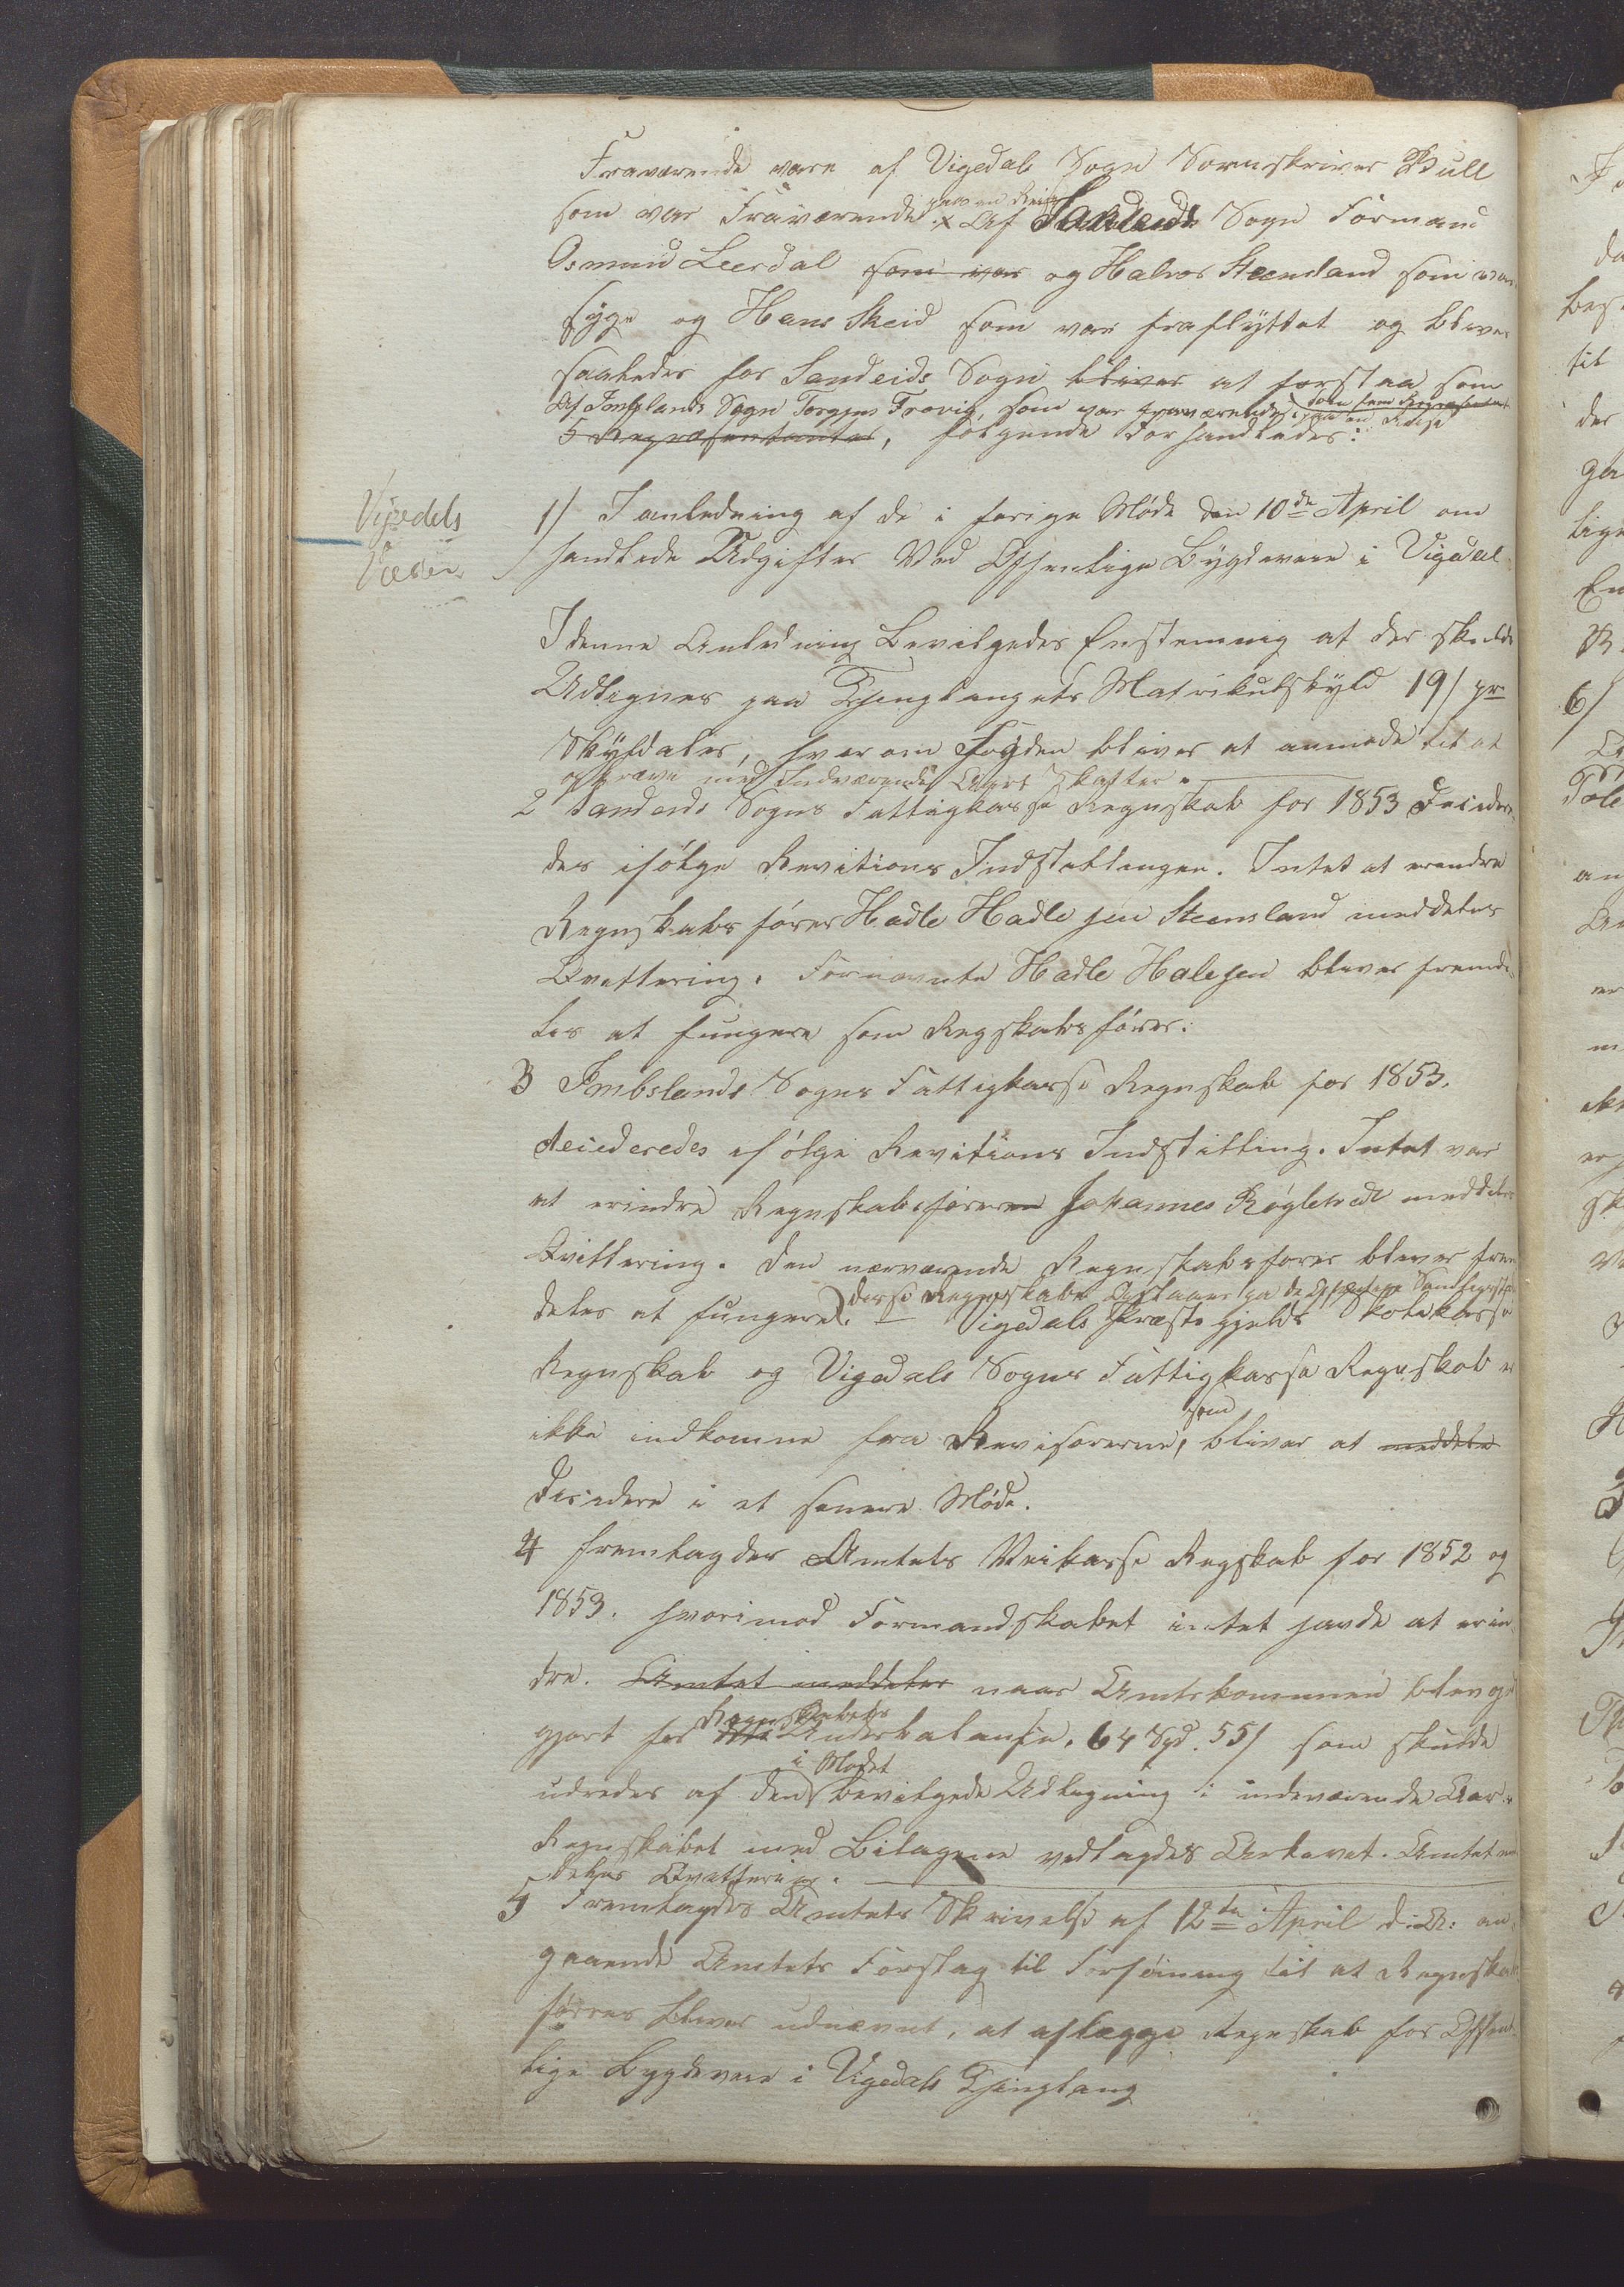 Fraværende vare af Vigedals Sogn Sornskriver Bull
paa en Reise
som var Fraværende x Af Sandeids Sogn Formand
Osmund Leerdal som var og Halvor Steensland som var
syge og Hans Skeid som var fraflyttet og bliver
saaledes for Sandeids Sogn bliver at forstaa som
Af Imslands Sogn Torgjus Frovig, som var fraværende paa en Reise
5 Repræsentanter, følgende Forhandledes:
Vigedals
Veier
1/ I anledning af de i forige Møde den 10de April om
handlede Udgifter Ved Offentlige Bygdeveie i Vigedal
I denne Anledning Bevilgedes Enstemmig at der skulde
Udlignes paa Thinglaugets Matrikulskyld 19/ pr
Skyldaler, hvorom Fogden bliver at anmode til at
opkræve med Indværende Aars Skatter.
2 Sandeids Sogns Fattigkasse Regnskab for 1853 Decidere-
des ifølge Revitions Indstillingen. Intet at erindre
Regnskabsfører Hadle Hadlesen Steensland meddeles
Qvittering. Fornævnte Hadle Halesen bliver fremde-
les at fungere som Regskabsfører:
3 Imbslands Sogns Fattigkasse Regnskab for 1853.
deciederedes ifølge Revitions Indstilling. Intet var
at erindre Regnskabsføreren Johannes Røgletvedt meddeles
Qvittering. Den nærværende Regnskabsfører bliver frem
disse Regnskaber
deles at fungere. Vigedals Præstegjelds Skolekasse
Regnskab og Vigedals Sogns Fattigkasse Regnskab er
som
ikke indkomne fra Revisorerne, bliver at meddele
Decidere i et senere Møde.
4 fremlagdes Amtets Veikasse Regskab for 1852 og
1853. hvorimod Formandskabet intet havde at erin
dre. Amtet meddeles naar Amtskommunen blev god
Regnskabets
gjort for Underbalanse. 64 Spd. 55/ som skulde
i Mødet
udredes af den bevilgede Udlegning i indeværende Aar.
Regnskabet med Bilagene vedlagdes Arkivet. Amtet med
deles Qvittering.
5 Fremlagdes Amtets Skrivelse af 12te April d: A: an
gaaende Amtets Forslag til Forføining til at Regnskabs
fører bliver udnævnt, at aflægge Regnskab for Offent
lige Bygdeveie i Vigedals Thinglaug